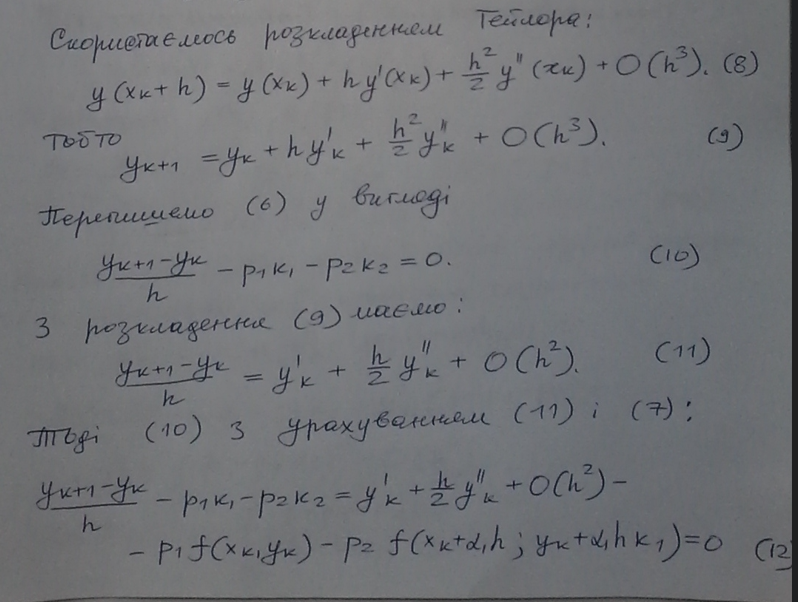 Скористаємось розкладенням Тейлора:
y(xₖ+h) = y(xₖ) + hy'(xₖ) + h²/2 y''(xₖ) + O(h³). (8)
тобто
yₖ₊₁ = yₖ + hy'ₖ + h²/2 y''ₖ + O(h³). (9)
Перепишемо (6) у вигляді
(yₖ₊₁ - yₖ)/h - p₁k₁ - p₂k₂ = 0. (10)
З розкладення (9) маємо:
(yₖ₊₁ - yₖ)/h = y'ₖ + h/2 y''ₖ + O(h²). (11)
Тоді (10) з урахуванням (11) і (7):
(yₖ₊₁ - yₖ)/h - p₁k₁ - p₂k₂ = y'ₖ + h/2 y''ₖ + O(h²) -
- p₁f(xₖ,yₖ) - p₂ f(xₖ+α₁h; yₖ+α₁hk₁) = 0 (12)